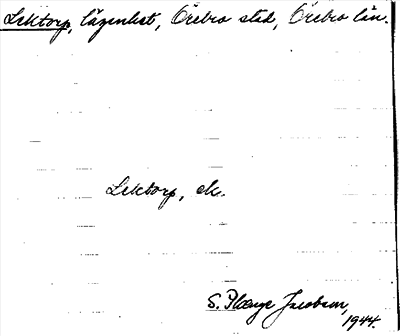 Lektorp, lägenhet, Örebro stad, Örebro län.
Lektorp, ek.
S. Plænge Jacobson,
1944.